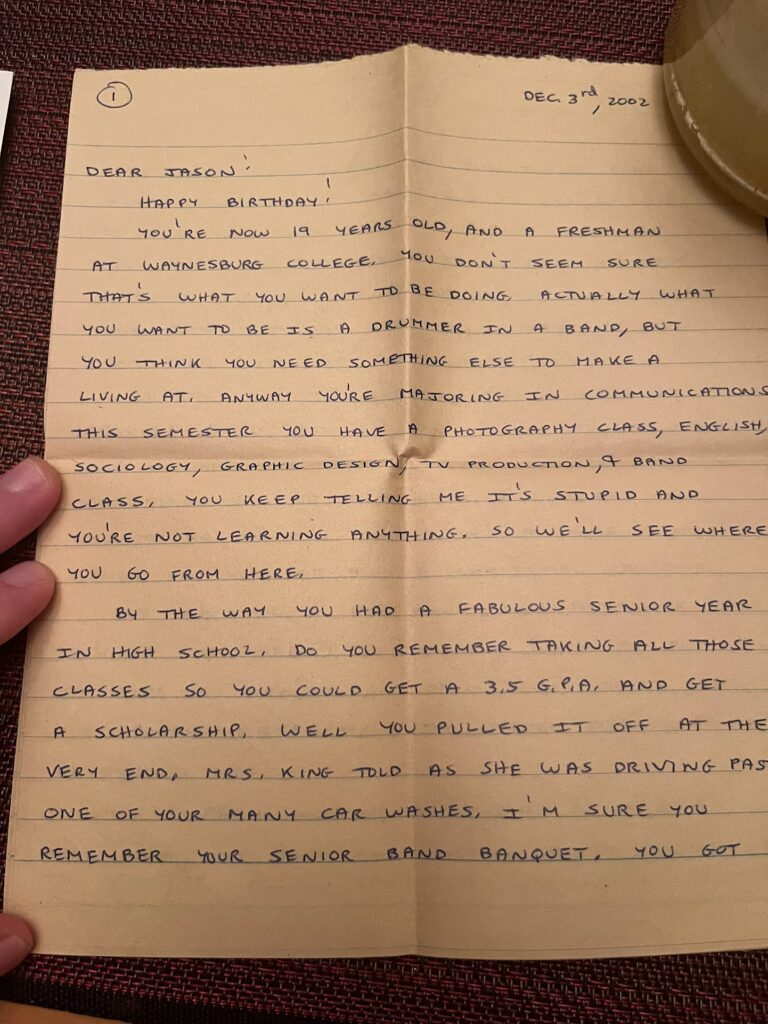 1
DEC. 3rd, 2002
DEAR JASON!
HAPPY BIRTHDAY!
YOU'RE NOW 19 YEARS OLD, AND A FRESHMAN
AT WAYNESBURG COLLEGE. YOU DON'T SEEM SURE
THAT'S WHAT YOU WANT TO BE DOING. ACTUALLY WHAT
YOU WANT TO BE IS A DRUMMER IN A BAND, BUT
YOU THINK YOU NEED SOMETHING ELSE TO MAKE A
LIVING AT. ANYWAY YOU'RE MAJORING IN COMMUNICATIONS
THIS SEMESTER YOU HAVE A PHOTOGRAPHY CLASS, ENGLISH,
SOCIOLOGY, GRAPHIC DESIGN, TV PRODUCTION, & BAND
CLASS. YOU KEEP TELLING ME IT'S STUPID AND
YOU'RE NOT LEARNING ANYTHING. SO WE'LL SEE WHERE
YOU GO FROM HERE.
BY THE WAY YOU HAD A FABULOUS SENIOR YEAR
IN HIGH SCHOOL. DO YOU REMEMBER TAKING ALL THOSE
CLASSES SO YOU COULD GET A 3.5 G.P.A. AND GET
A SCHOLARSHIP. WELL YOU PULLED IT OFF AT THE
VERY END. MRS. KING TOLD AS SHE WAS DRIVING PAS
ONE OF YOUR MANY CAR WASHES. I'M SURE YOU
REMEMBER YOUR SENIOR BAND BANQUET. YOU GOT